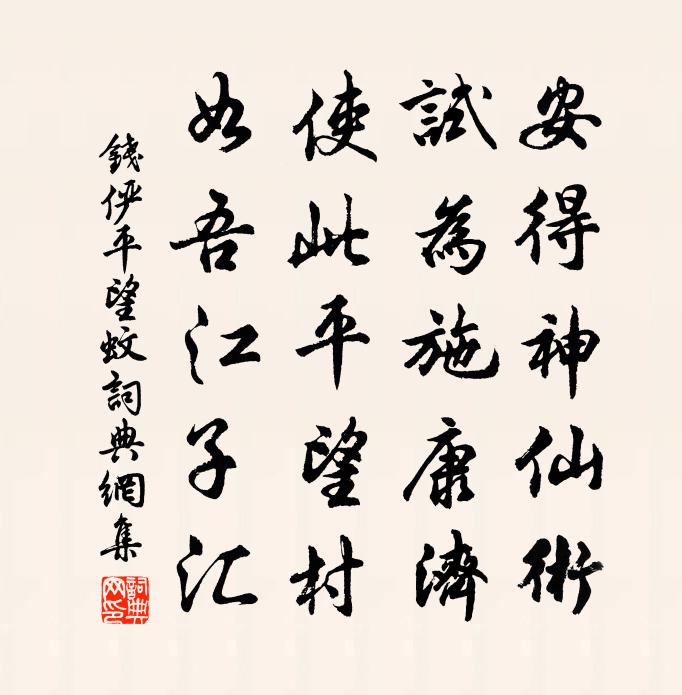 安得神仙術
試為施康濟
使此平望村
如吾江子汇
錢俨平望蚊詞典網集
詞典網印